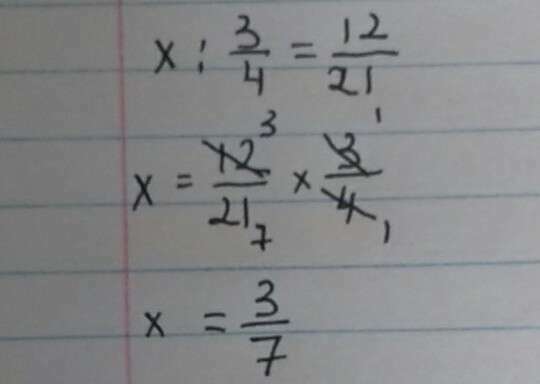 x : 3/4 = 12/21
x = 12 3/21 7 × 3 1/4 1
x = 3/7